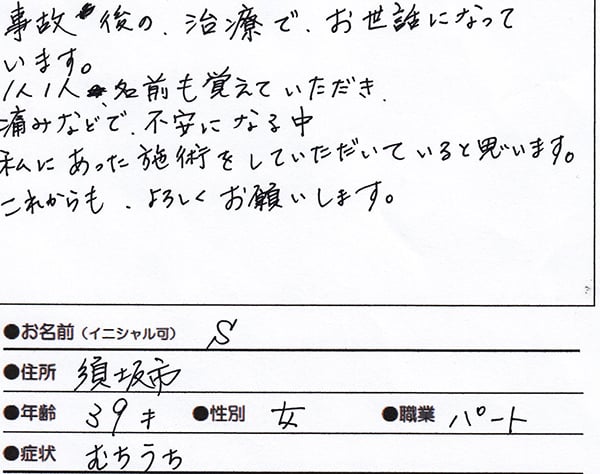 事故後の、治療で、お世話になって
います。
1人1人、名前も覚えていただき、
痛みなどで、不安になる中
私にあった施術をしていただいていると思います。
これからも、よろしくお願いします。
●お名前（イニシャル可） S
●住所 須坂市
●年齢 39才 ●性別 女 ●職業 パート
●症状 むちうち